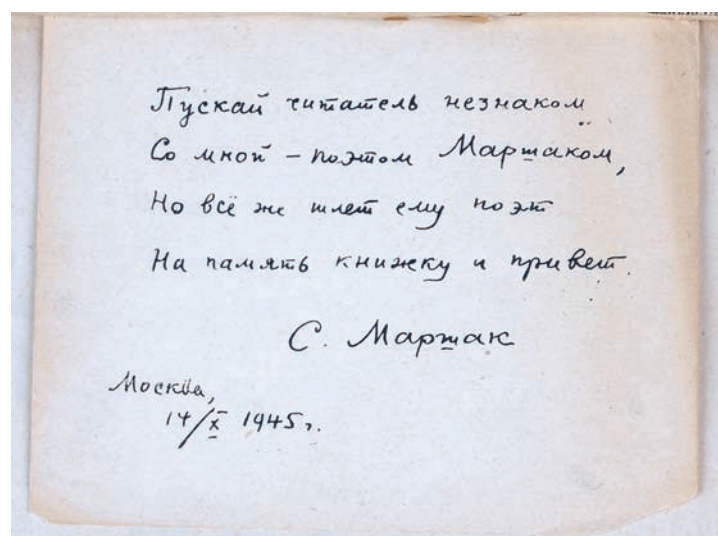 Пускай читатель незнаком
Со мной – поэтом Маршаком,
Но всё же шлет ему поэт
На память книжку и привет.
С. Маршак
Москва,
14/X 1945 г.